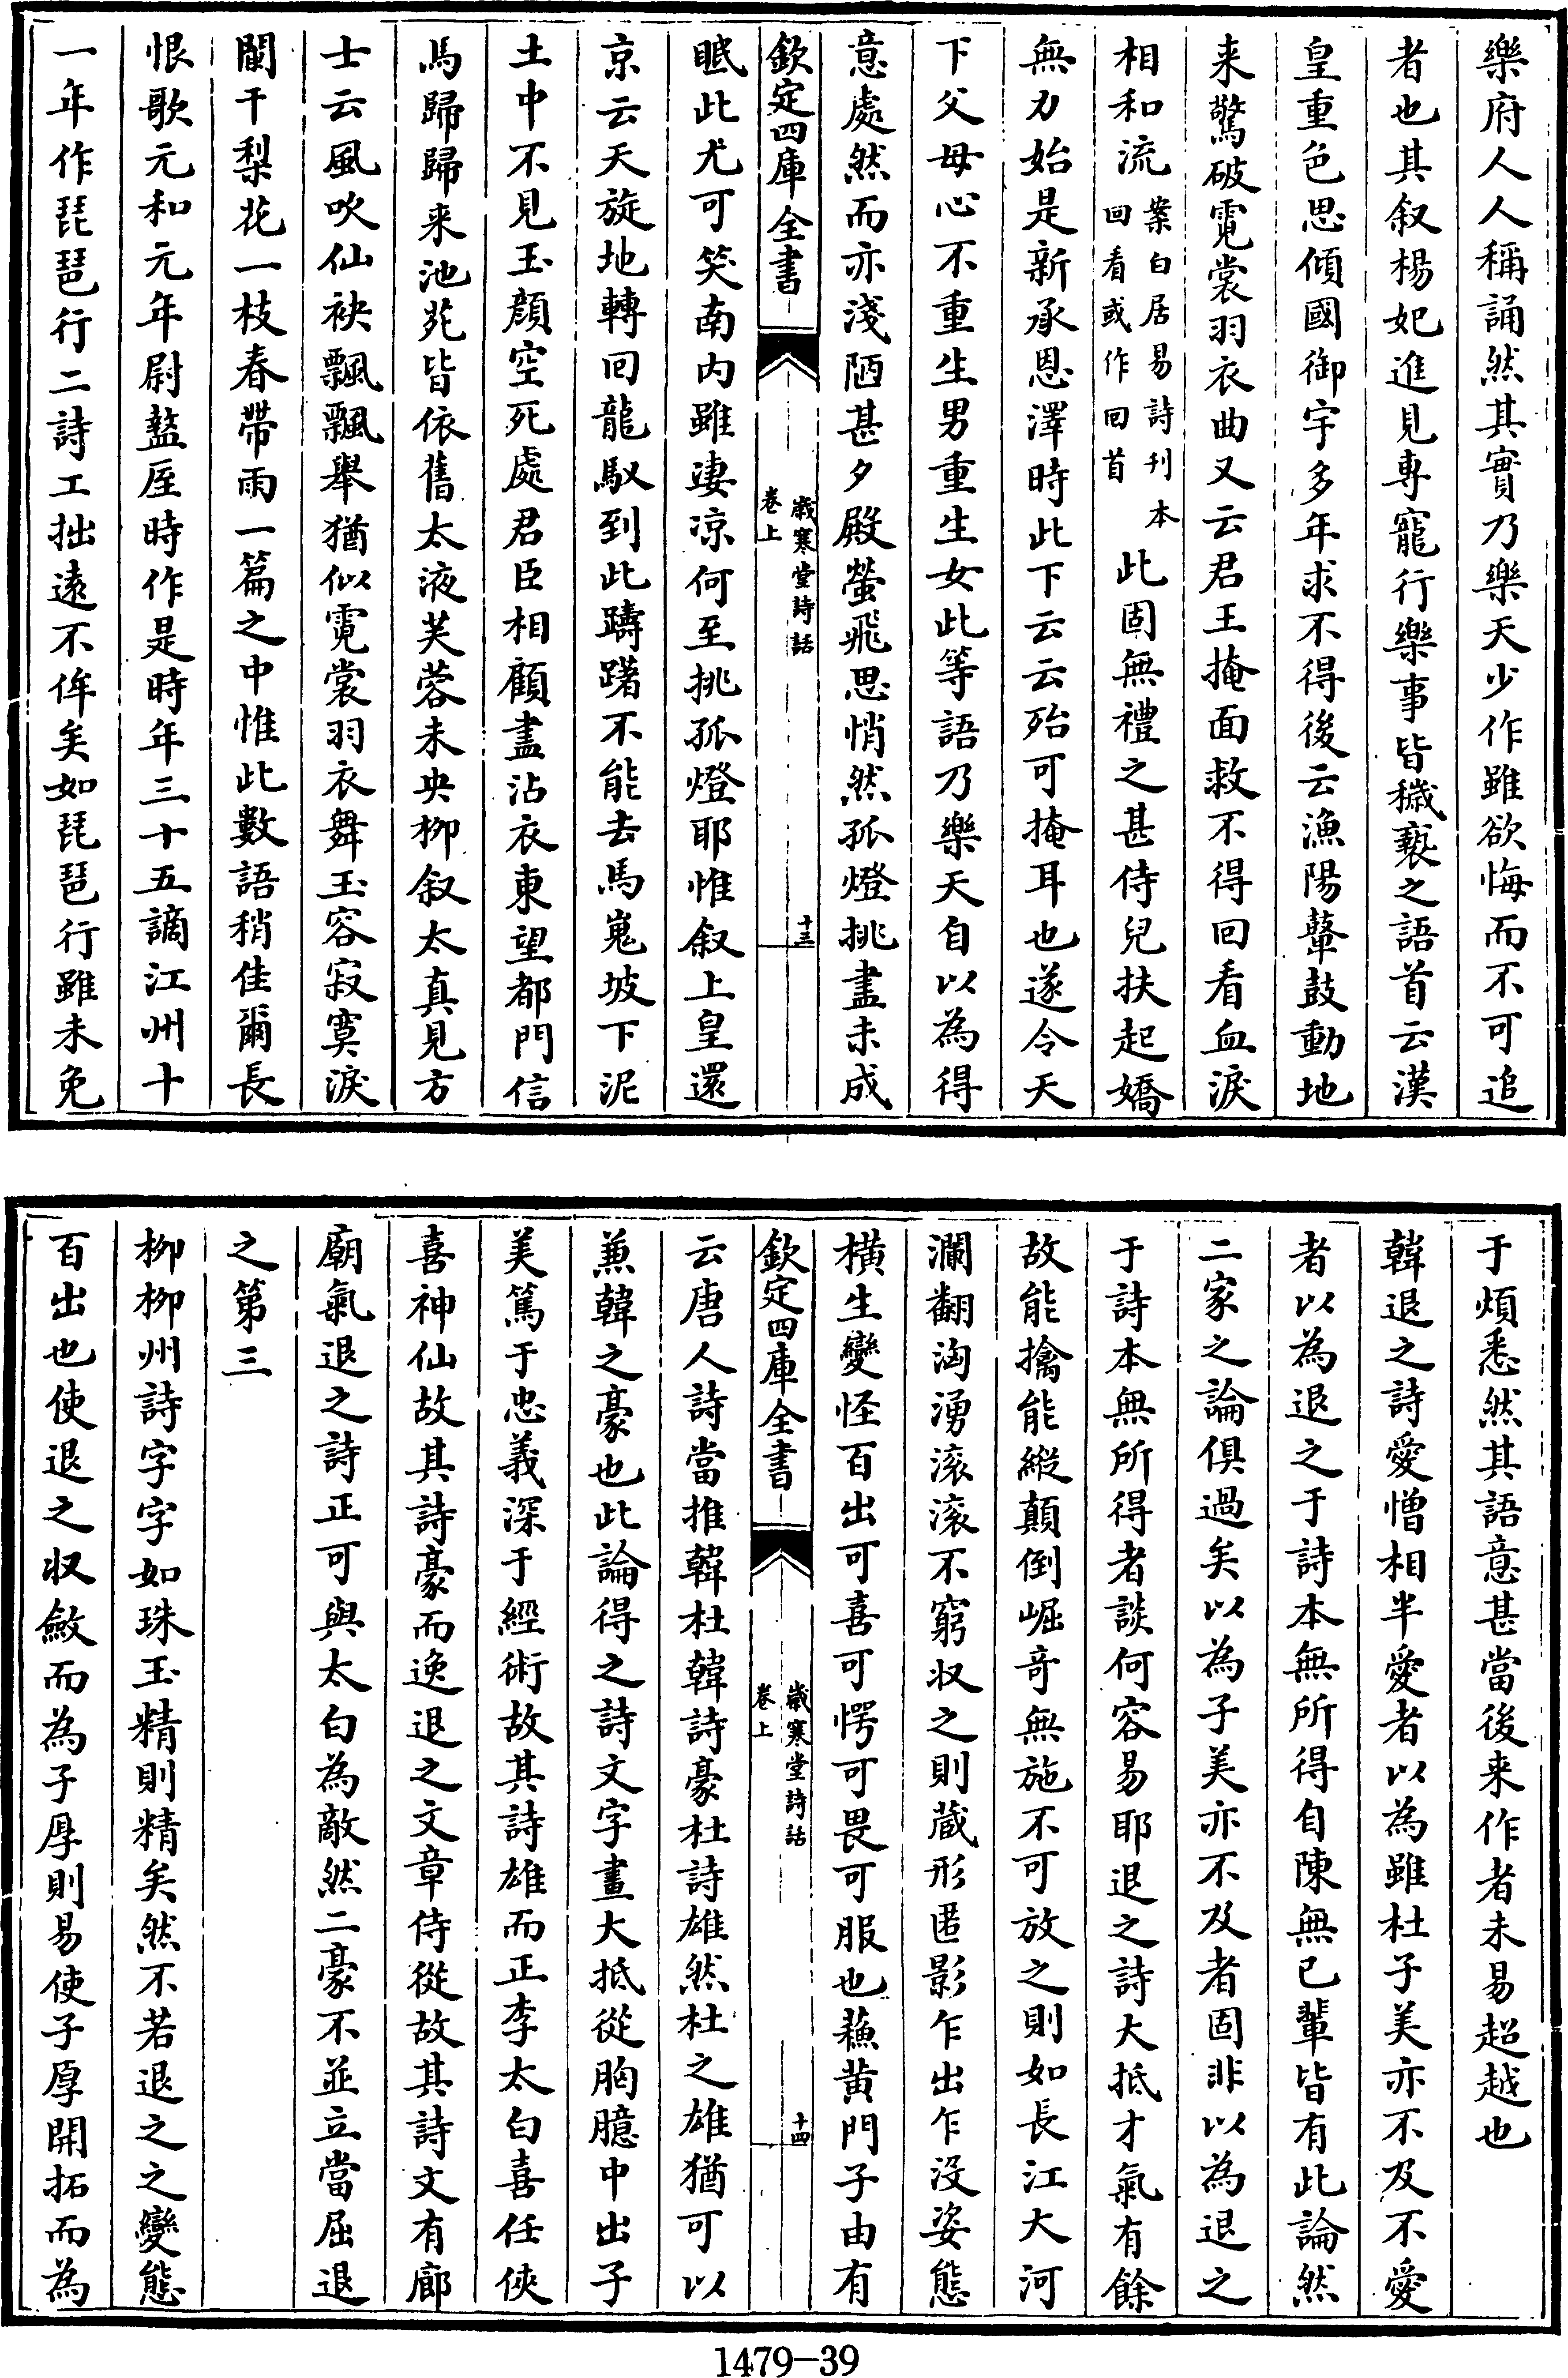 樂府人人稱誦然其實乃樂天少作雖欲悔而不可追
者也其叙楊妃進見專寵行樂事皆穢䙝之語首云漢
皇重色思傾國御宇多年求不得後云漁陽鼙鼓動地
来驚破霓裳羽衣曲又云君王掩面救不得回看血淚
相和流案白居易詩刋本回看或作回首此固無禮之甚侍兒扶起嬌
無力始是新承恩澤時此下云云殆可掩耳也遂令天
下父母心不重生男重生女此等語乃樂天自以為得
意處然而亦淺陋甚夕殿螢飛思悄然孤燈挑盡未成
欽定四庫全書
歲寒堂詩話
卷上
十三
眠此尤可笑南内雖凄凉何至挑孤燈耶惟叙上皇還
京云天旋地轉回龍馭到此躊躇不能去馬嵬坡下泥
土中不見玉顔空死處君臣相顧盡沾衣東望都門信
馬歸歸来池苑皆依舊太液芙蓉未央柳叙太真見方
士云風吹仙袂飄飄舉猶似霓裳羽衣舞玉容寂寞淚
闌干梨花一枝春帶雨一篇之中惟此數語稍佳爾長
恨歌元和元年尉盩厔時作是時年三十五謫江州十
一年作琵琶行二詩工拙逺不侔矣如琵琶行雖未免
于煩悉然其語意甚當後来作者未易超越也
韓退之詩愛憎相半愛者以為雖杜子美亦不及不愛
者以為退之于詩本無所得自陳無已輩皆有此論然
二家之論俱過矣以為子美亦不及者固非以為退之
于詩本無所得者談何容易耶退之詩大抵才氣有餘
故能擒能縱顛倒崛竒無施不可放之則如長江大河
瀾翻洶湧滚滚不窮收之則藏形匿影乍出乍没姿態
横生變怪百出可喜可愕可畏可服也蘇黄門子由有
欽定四庫全書
歲寒堂詩話
卷上
十四
云唐人詩當推韓杜韓詩豪杜詩雄然杜之雄猶可以
兼韓之豪也此論得之詩文字畫大抵從胸臆中出子
美篤于忠義深于經術故其詩雄而正李太白喜任俠
喜神仙故其詩豪而逸退之文章侍從故其詩文有廊
廟氣退之詩正可與太白為敵然二豪不並立當屈退
之第三
柳柳州詩字字如珠玉精則精矣然不若退之之變態
百出也使退之收斂而為子厚則易使子厚開拓而為
1479-39